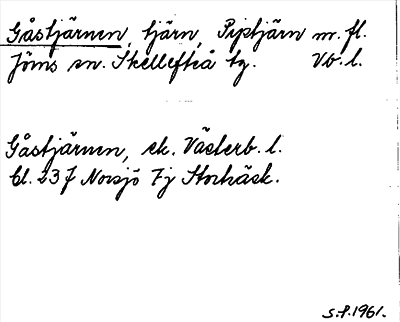 Gåstjärnen, tjärn, Piptjärn m. fl.
Jörns sn. Skellefteå tg. Vb. l.
Gåstjärnen, ek. Västerb. l.
Bl. 23 J Norsjö 7j Storträsk.
S.P. 1961.